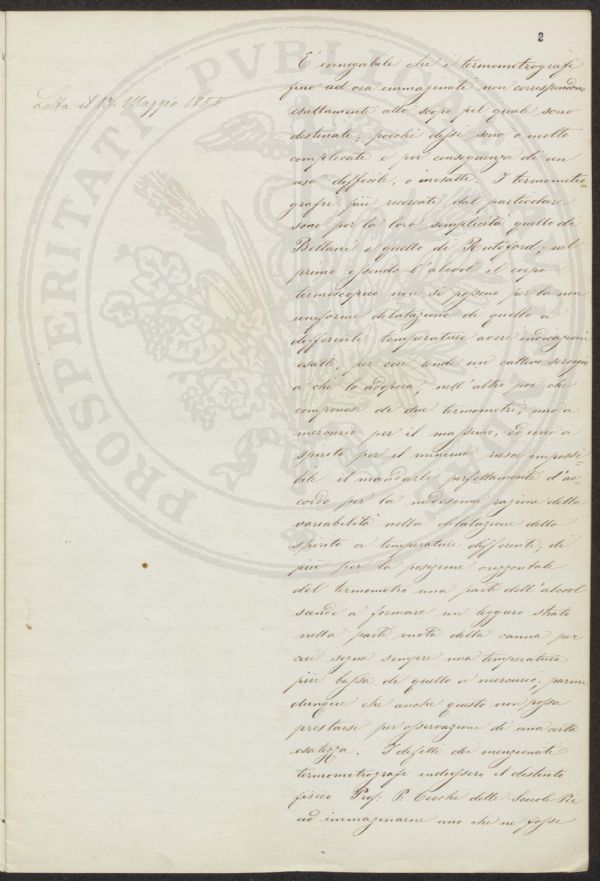 2
Letta il 13. Maggio 1855
E' innegabile che i termometrografi
fino ad ora immaginati non corrispondono
esattamente allo scopo pel quale sono
destinati, poichè essi sono o molto
complicati e per conseguenza di un
uso difficile, o inesatti. I termometro
grafi più ricercati dal particolare
sono per la loro semplicità quello di
Bellani e quello di Ruteford; nel
primo essendo l'alcool il corpo
termoscopico non si possono per la non
uniforme dilatazione di quello a
differenti temperature avere indicazioni
esatte, per cui rende un cattivo servigio
a chi lo adopera; nell'altro poi che
componesi di due termometri, uno a
mercurio per il massimo, ed uno a
spirito per il minimo riesce impossi=
bile il mandarli perfettamente d'ac=
cordo per la medesima ragione della
variabilità nella dilatazione dello
spirito a temperature differenti; di
più per la posizione orizzontale
del termometro una parte dell'alcool
scende a formare un leggiero strato
nella parte vuota della canna per
cui segna sempre una temperatura
più bassa di quello a mercurio; parmi
dunque che anche questo non possa
prestarsi per osservazioni di una certa
esatezza. I difetti dei menzionati
termometrografi indussero il distinto
fisico Prof. P. Cecchi delle Scuole Pie
ad immaginarne uno che ne fosse
PROSPERITATI PVBLICAE